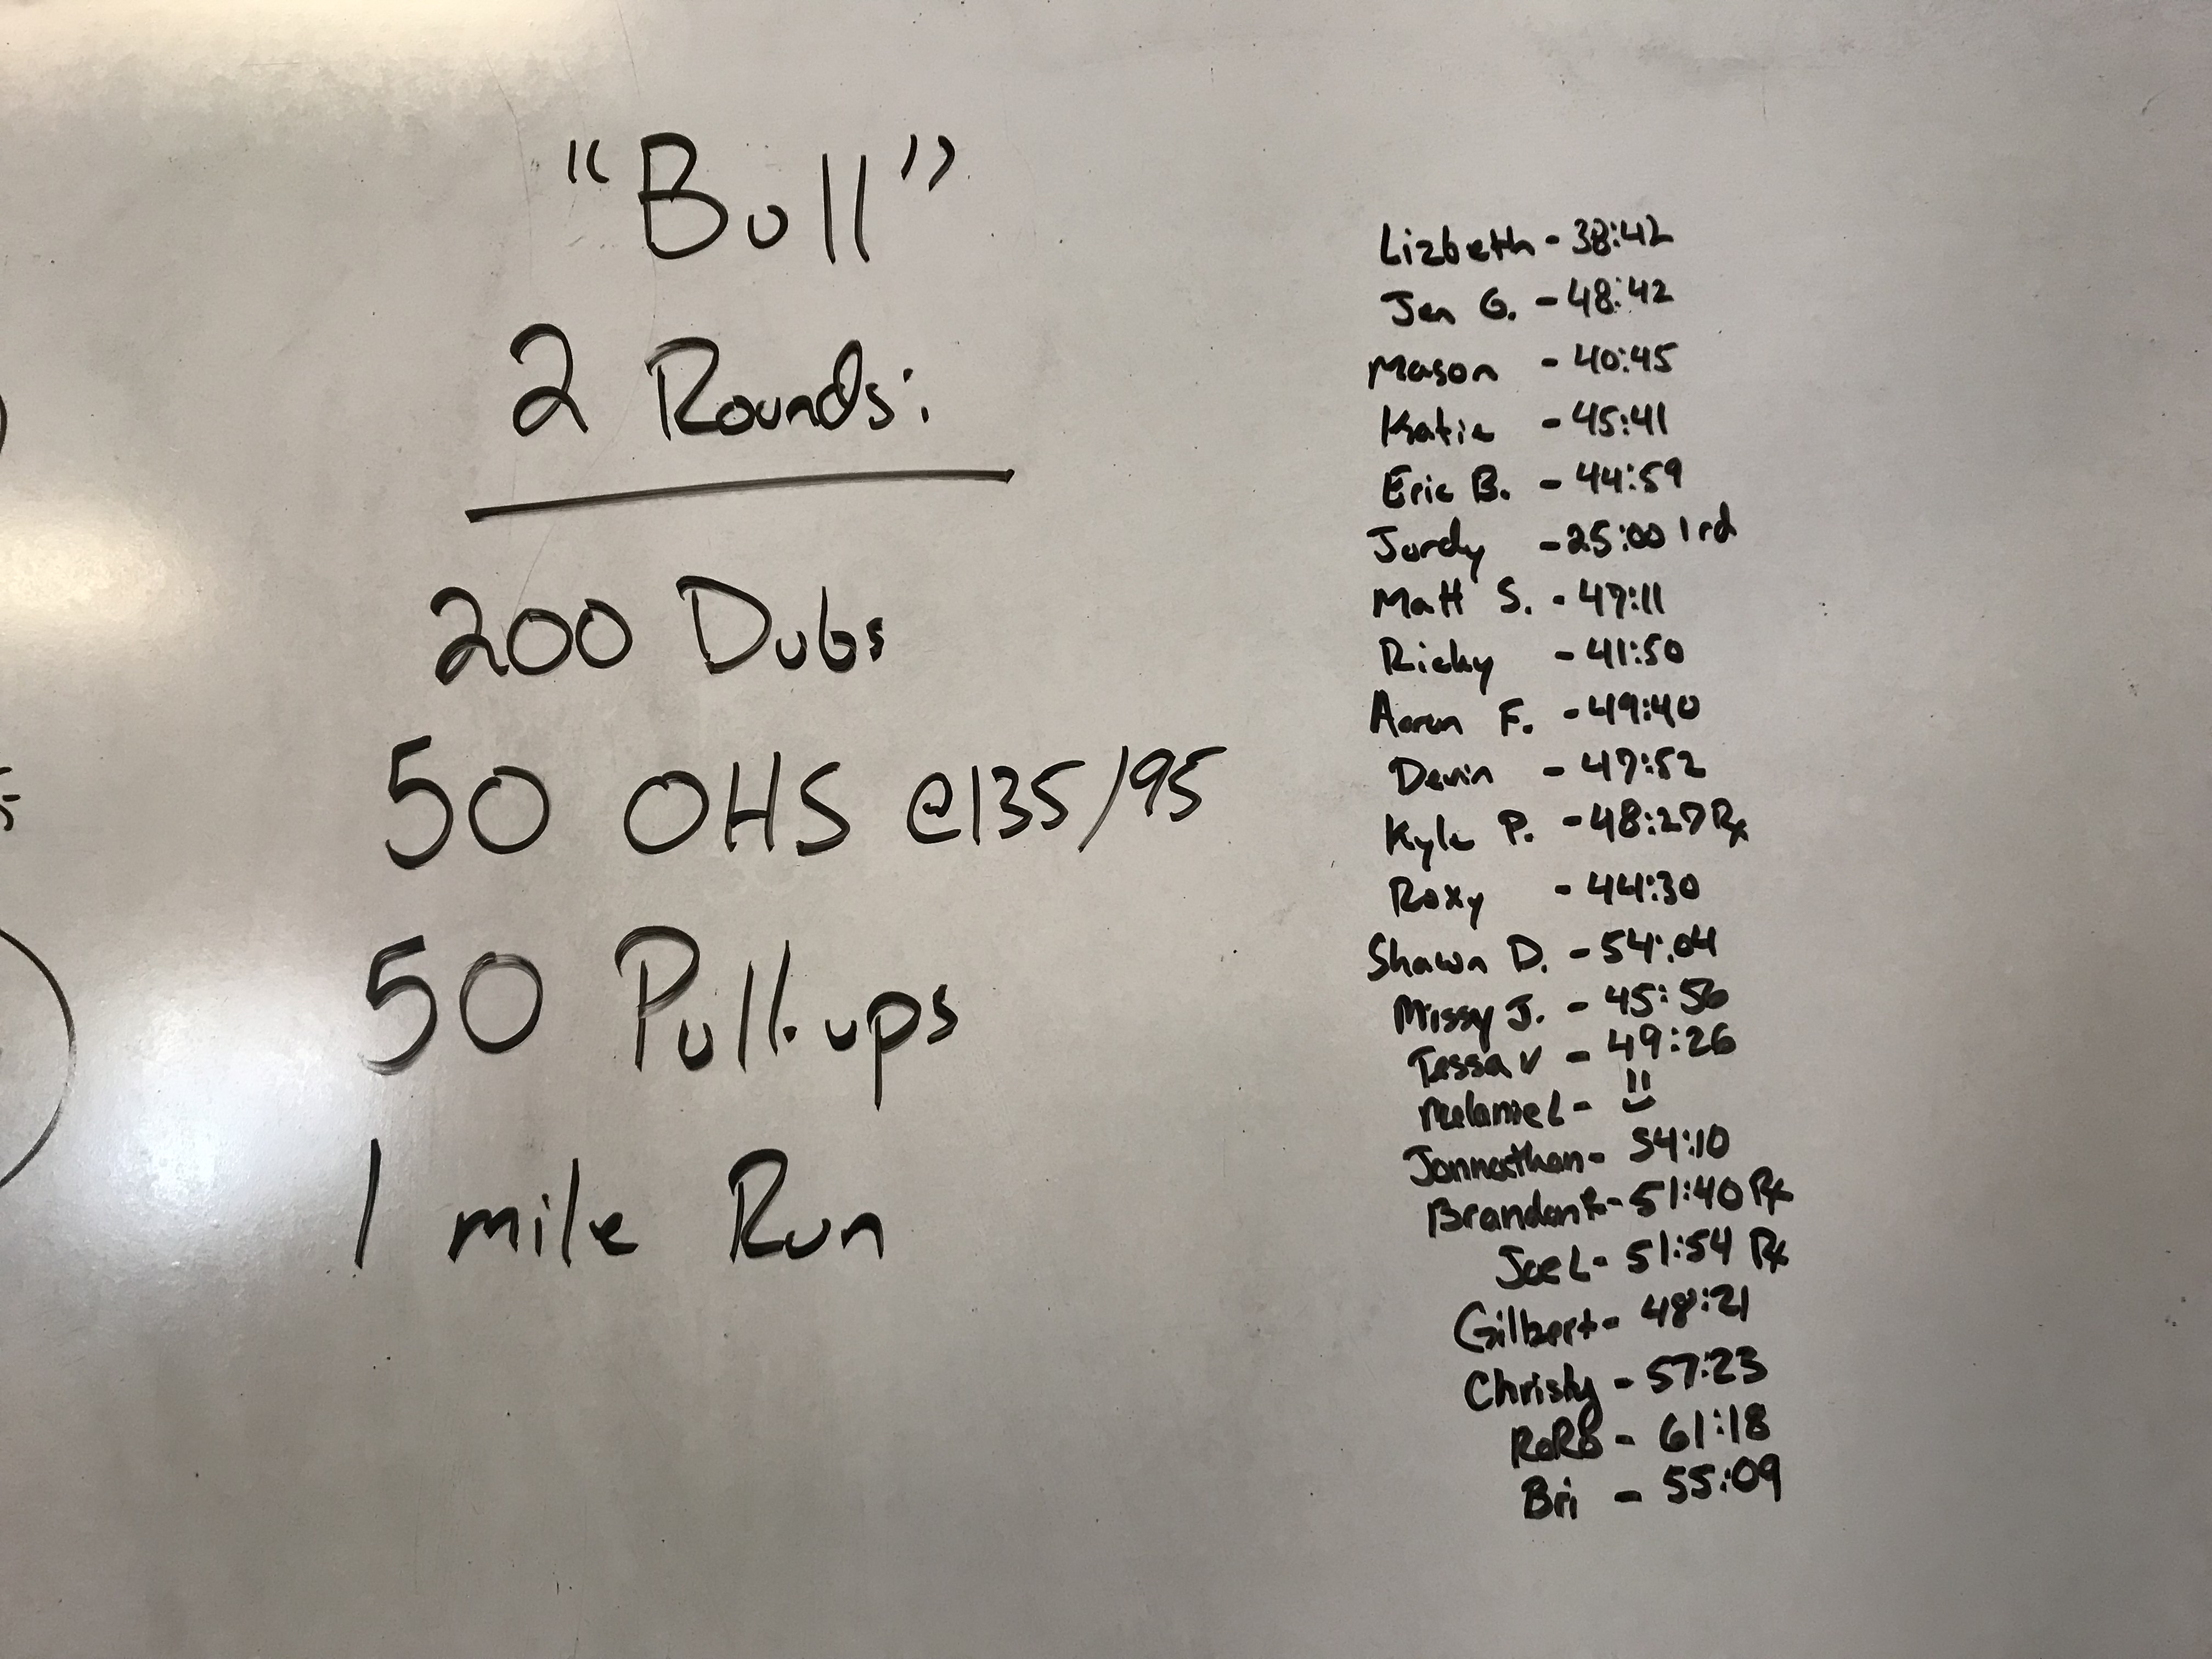 "Bull"
2 Rounds:
200 Dubs
50 OHS @135/95
50 Pull-ups
1 mile Run
Lizbeth - 38:42
Jen G. - 48:42
Mason - 40:45
Katie - 45:41
Eric B. - 44:59
Jordy - 25:00 1 rd
Matt S. - 47:11
Ricky - 41:50
Aaron F. - 49:40
Devin - 47:52
Kyle P. - 48:27 Rx
Roxy - 44:30
Shawn D. - 54:04
Missy J. - 45:56
Tessa V - 49:26
Melanie L -
Jonnathan - 54:10
Brandon R - 51:40 Rx
Joe L - 51:54 Rx
Gilbert - 48:21
Christy - 57:23
RoRo - 61:18
Bri - 55:09